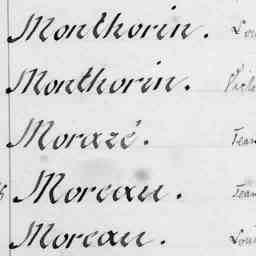 Monthorin. Lou
Monthorin. Victo
Morazé. Jean
Moreau. Jean
Moreau. Loui